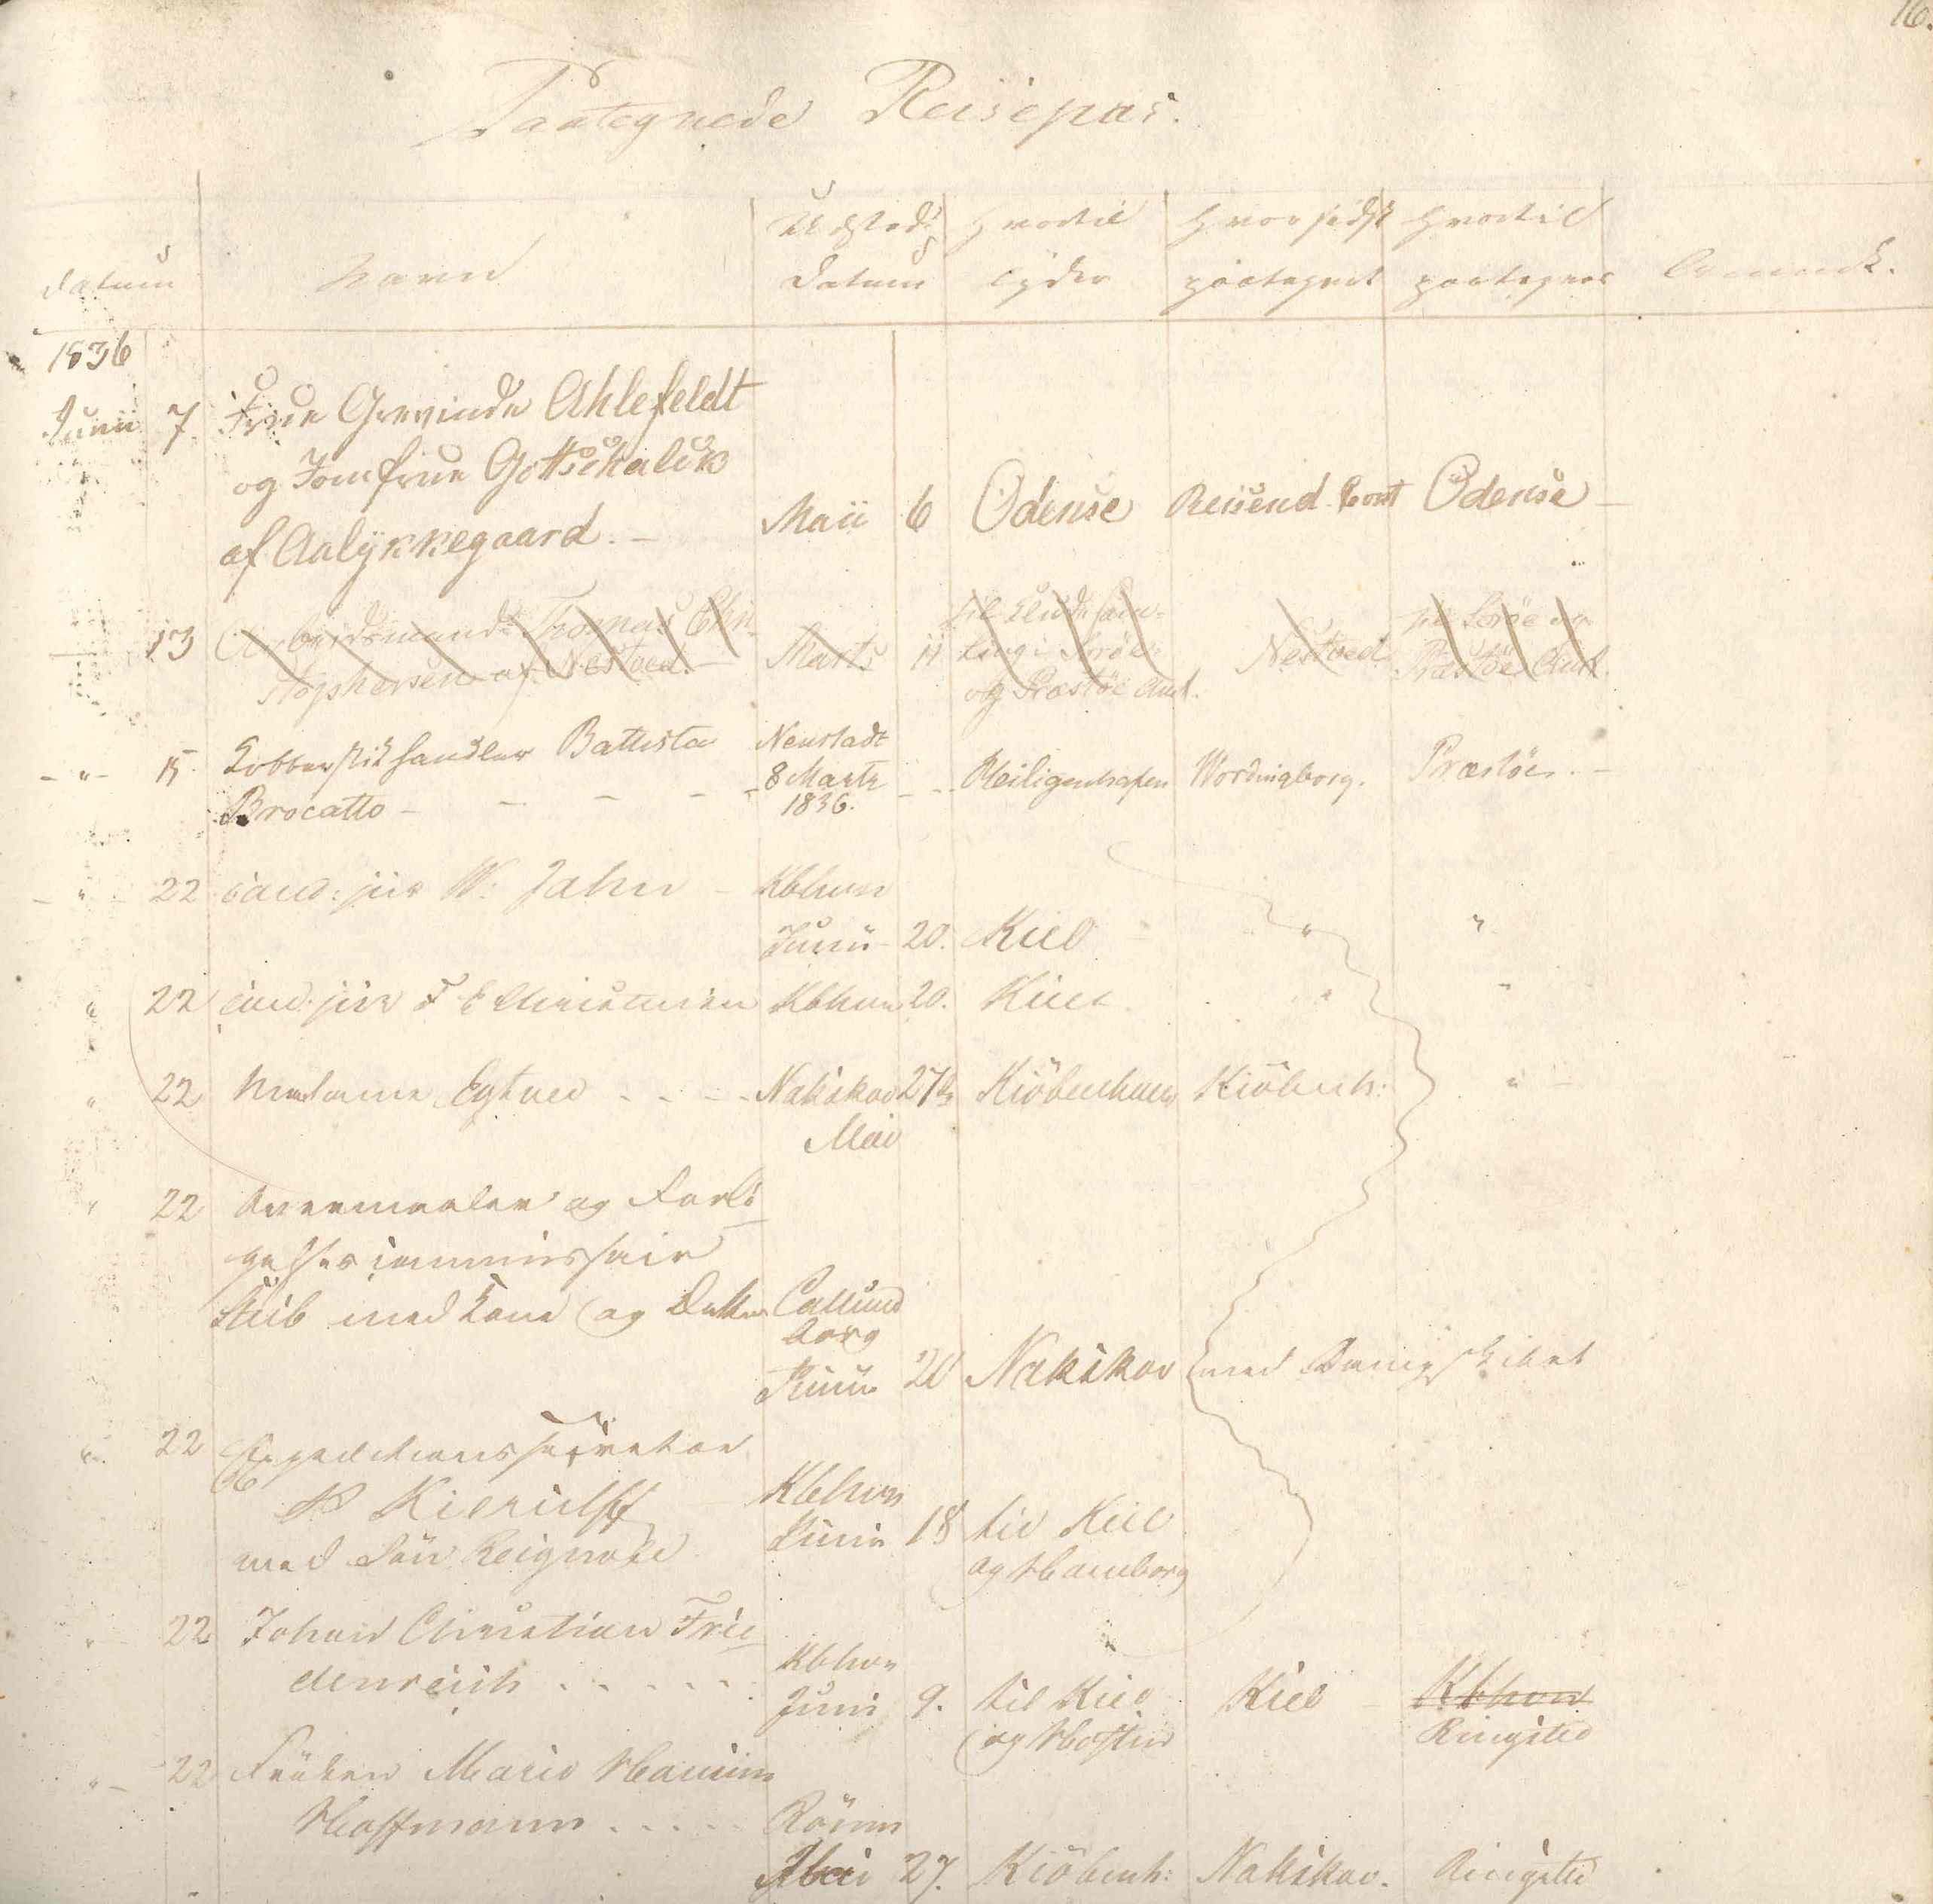 16.
Paategnede Reisepas.
Datum
Navn
Udstæd:
Datum
Hvortil
lyder
Hvor sidst
paategnet
Hvortil
paategnes
Anmærk.
1836
Junii 7 Frue Grevinde Ahlefeldt
og Jomfrue Gottschalck
af Aalykkegaard. Maii 6 Odense Reisend Cont Odense
13 Arbeidsmand Thomas Chri-
stophersen af Nestved. Marts 11 til Klude Sam-
ling i Soröe
og Præstöe Amt. Nestved paa Soröe og
Præstöe Amt.
" 15 Kobberstikhandler Battista
Brocatto Neustadt
8 Marts
1836. Heiligenhafen Wordingborg. Præstöe.
" 22 Cand: jur W. Jahn Kbhvn
Junii 20. Kiel " "
" 22 Cand: jur F E Christensen Kbhvn 20. Kiel " "
" 22 Madame Egtved Nakskov 27de
Mai Kiöbenhavn Kiöbenh: "
" 22 Overmaaler og
commissair
med Kone og Datter Callund
borg
Junii 20 Nakskov med Dampskibet
" 22 Expeditionssecretær
Kierulff
med Sön Kbhvn
Junii 18 til Kiel
og Hamborg
" 22 Johan Christian Frie
denreich Kbhvn
Juni 9. til Kiel
og Holsten Kiel Kbhvn
Ringsted
" 22 Fröken Marie
Hoffmann Rönne
Mai 27. Kiöbenh: Nakskov. Ringsted